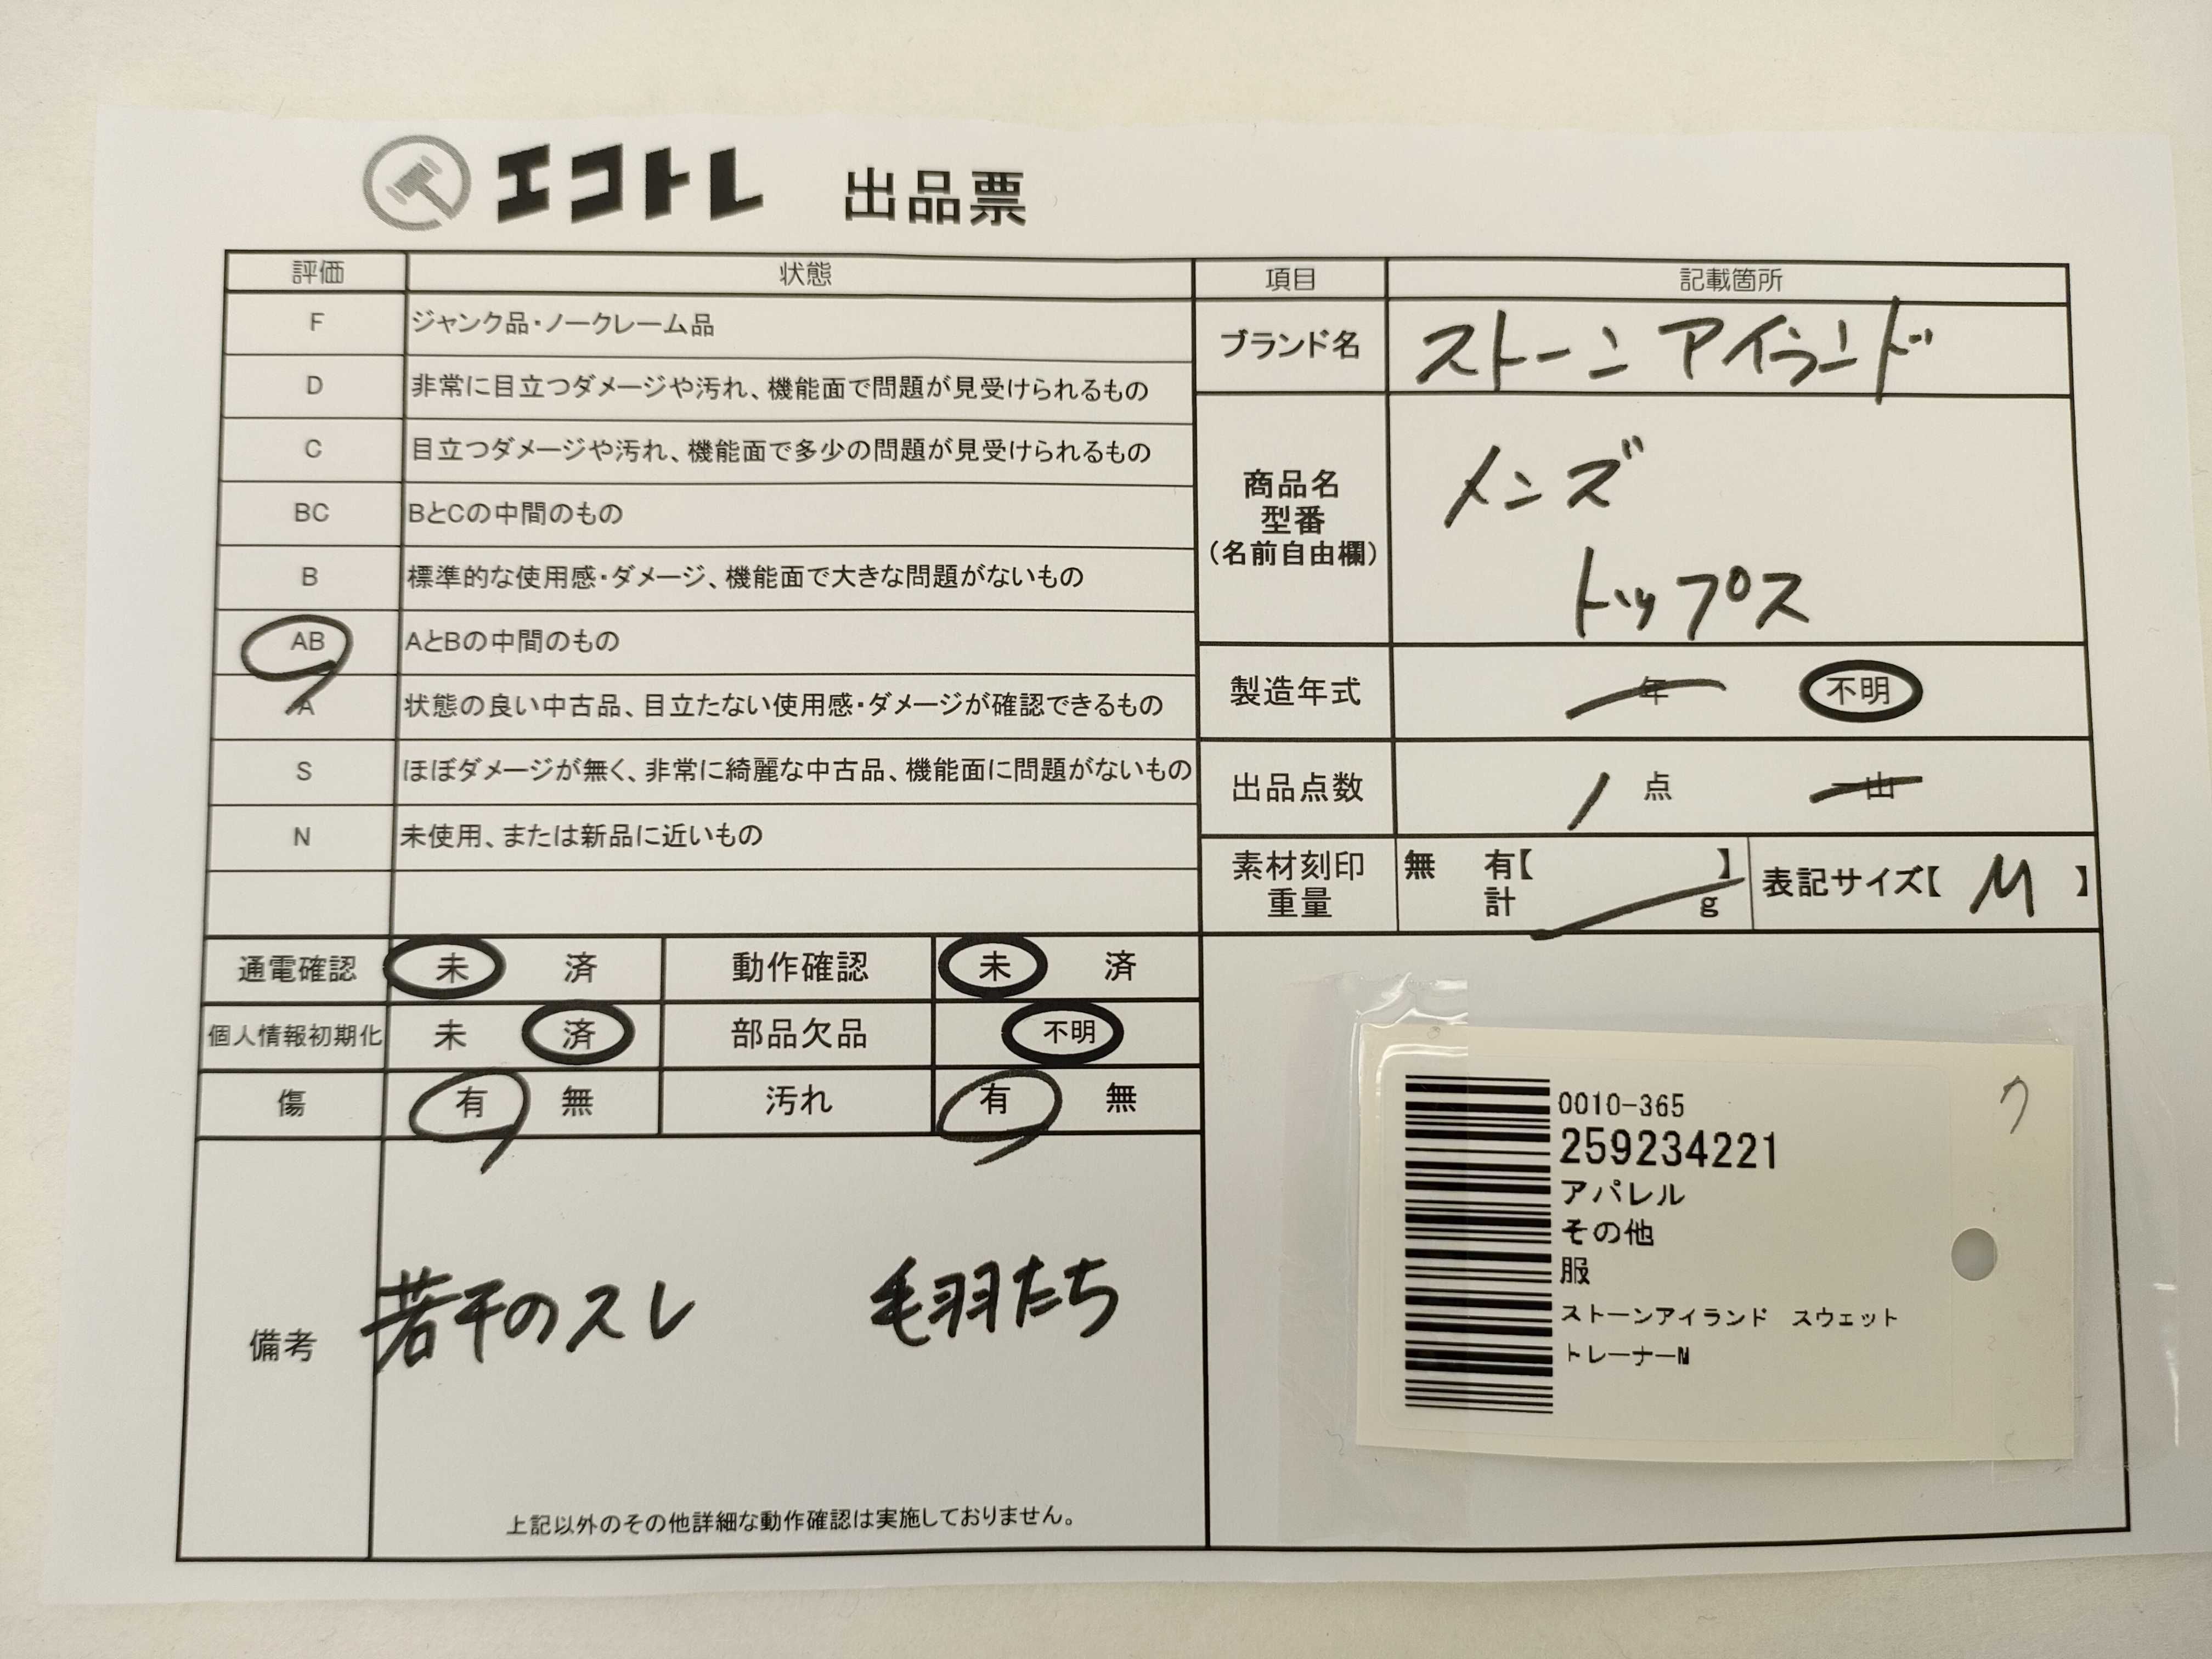 エコトレ 出品票
評価 状態
F ジャンク品・ノークレーム品
D 非常に目立つダメージや汚れ、機能面で問題が見受けられるもの
C 目立つダメージや汚れ、機能面で多少の問題が見受けられるもの
BC BとCの中間のもの
B 標準的な使用感・ダメージ、機能面で大きな問題がないもの
AB AとBの中間のもの
A 状態の良い中古品、目立たない使用感・ダメージが確認できるもの
S ほぼダメージが無く、非常に綺麗な中古品、機能面に問題がないもの
N 未使用、または新品に近いもの
通電確認 未 済 動作確認 未 済
個人情報初期化 未 済 部品欠品 不明
傷 有 無 汚れ 有 無
備考 若干のスレ 毛羽たち
上記以外のその他詳細な動作確認は実施しておりません。
項目 記載箇所
ブランド名 ストーンアイランド
商品名
型番
(名前自由欄)
メンズ
トップス
製造年式 年 不明
出品点数 1 点 一山
素材刻印
重量
無 有【 】
計 g
表記サイズ【 M 】
0010-365
259234221
アパレル
その他
服
ストーンアイランド スウェット
トレーナーM